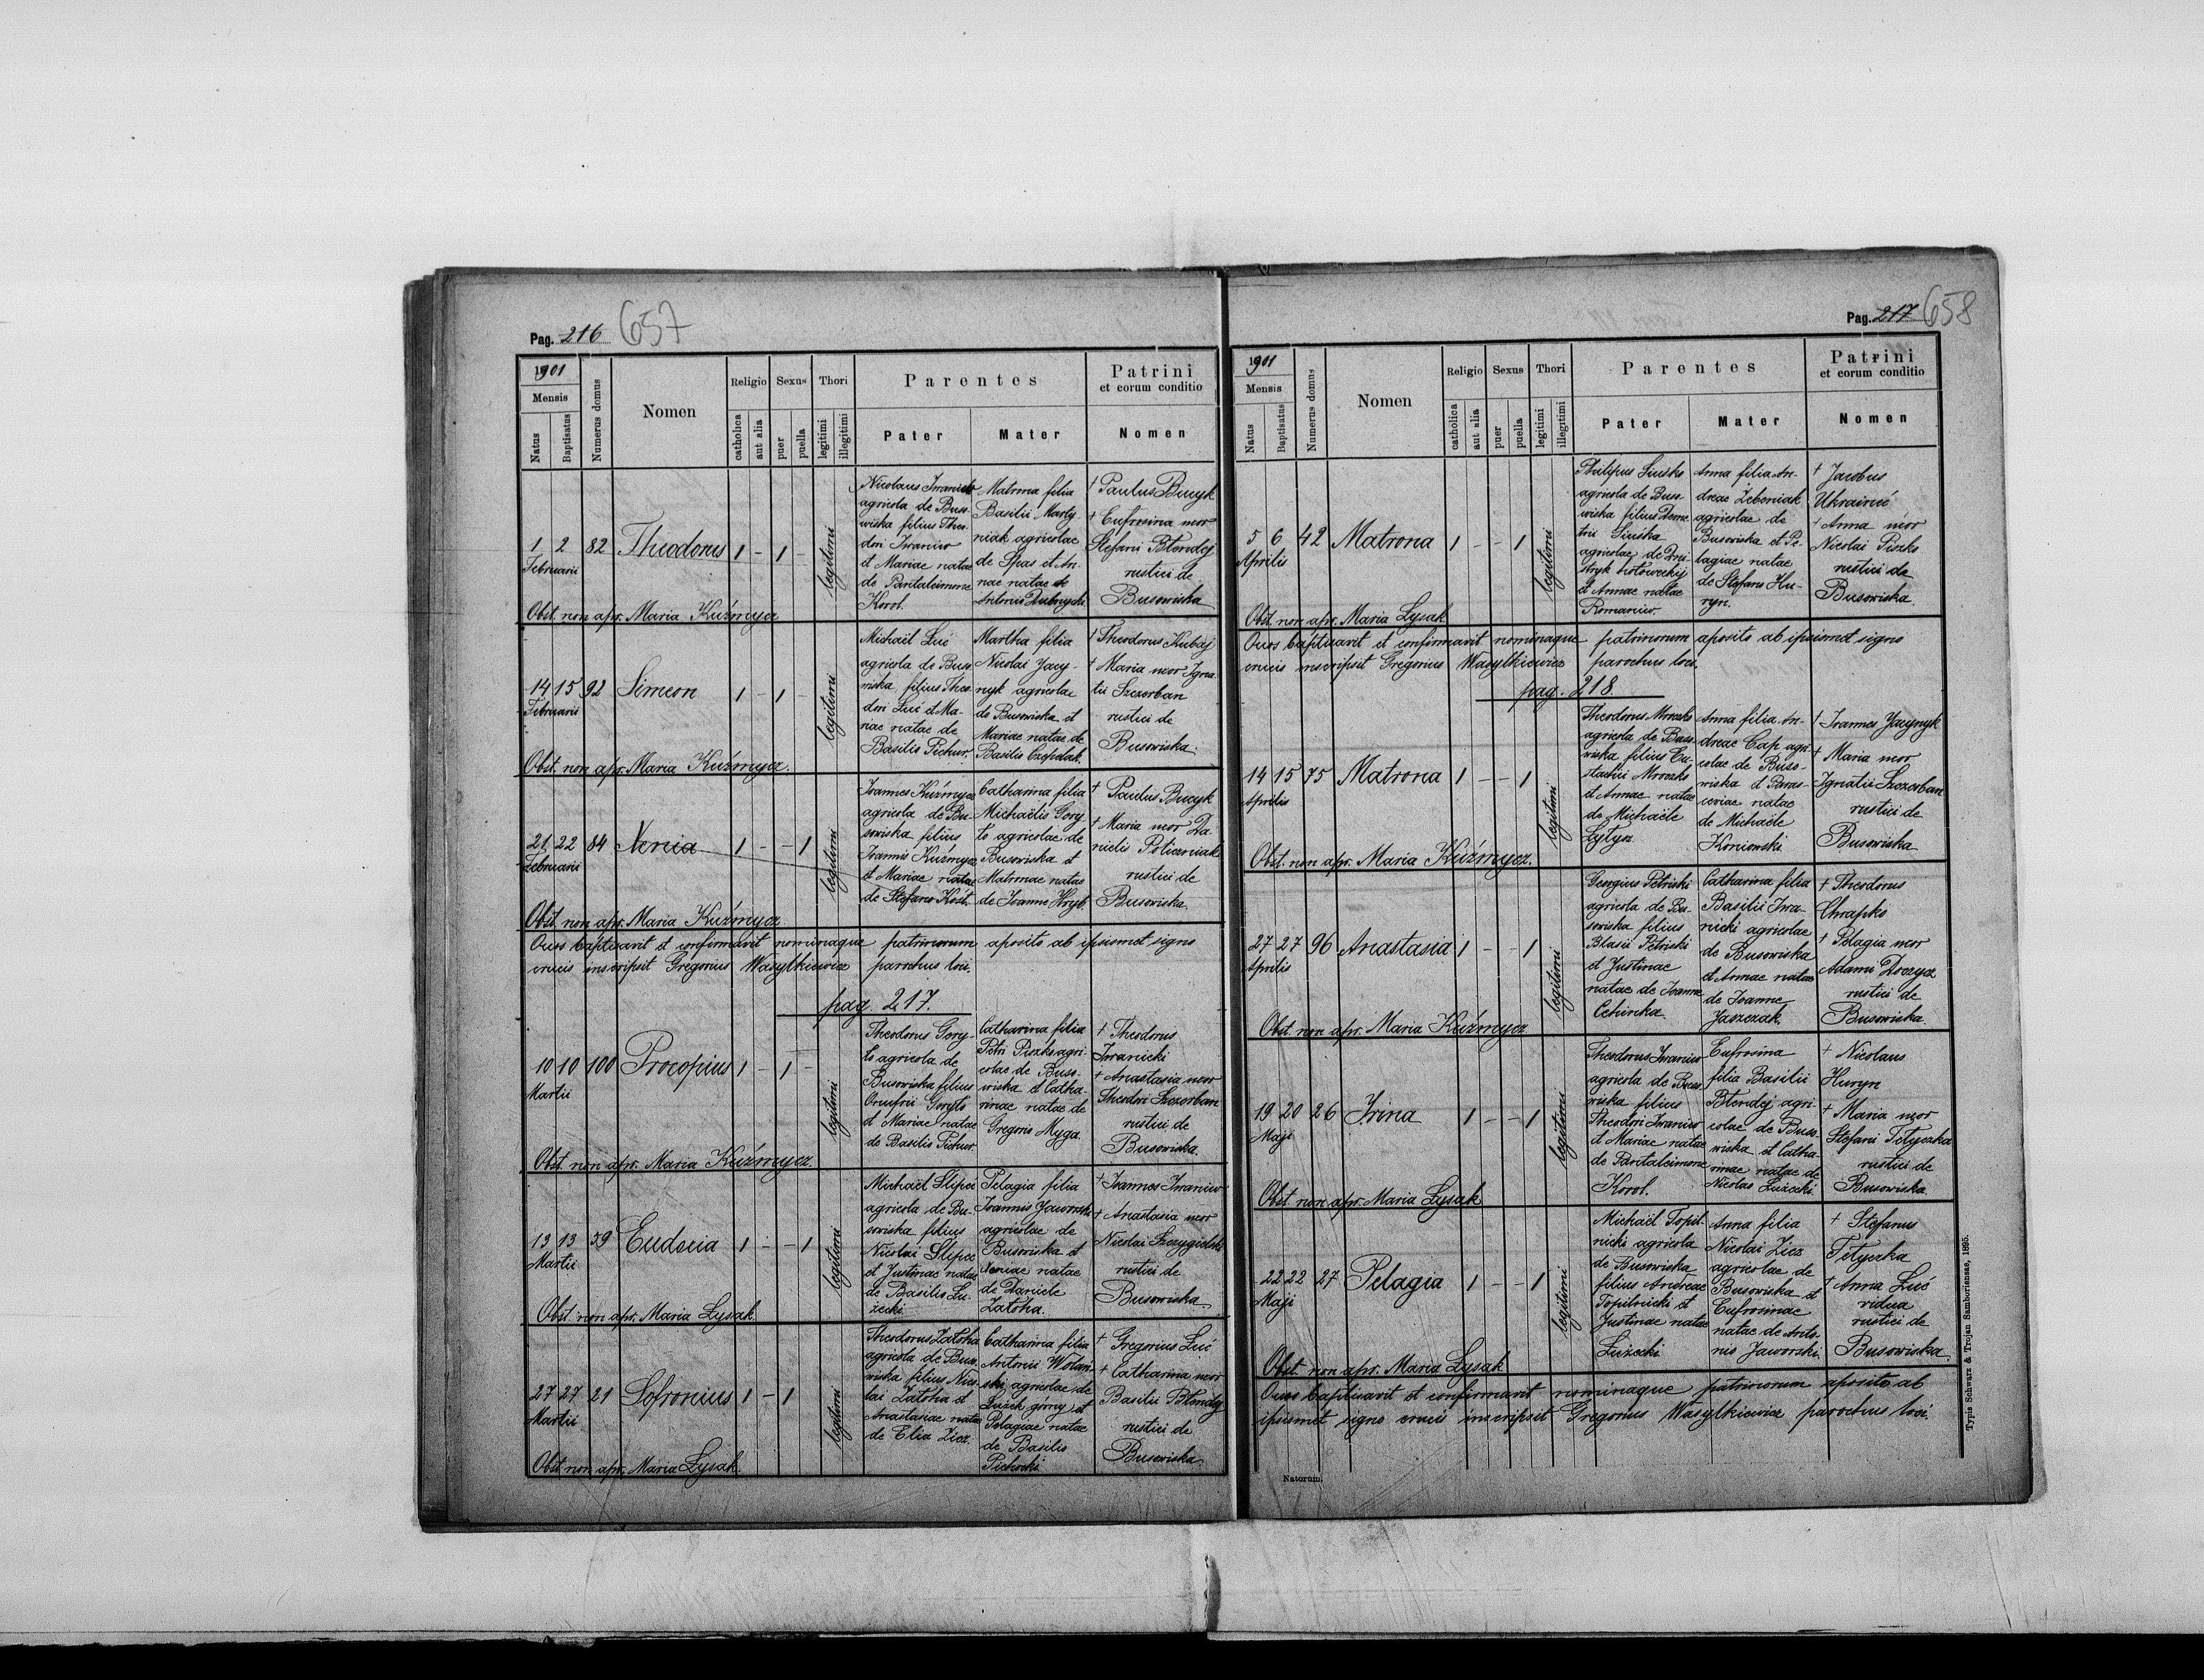 Pag. 216 657
1901
Mensis
Natus
Baptisatus
Numerus domus
Nomen
Religio
catholica
aut alia
Sexus
puer
puella
Thori
legitimi
illegitimi
Parentes
Pater
Mater
Patrini
et eorum conditio
Nomen
1 2 82 Theodorus 1 - 1 -
Februarii
legitimi
Nicolaus Iwaniw
agricola de Buso-
wiska filius Theo-
dori Iwaniw
et Mariae natae
de Pantaleimone
Korol.
Matrona filia
Basilii Marty
niak agricolae
de Spas et An-
nae natae de
Antonio Dubnycki
† Paulus Bucyk
† Eufrosina uxor
Stefani Btendej
rustici de
Busowiska
Obst. non apr. Maria Kuźmycz
14 15 92 Simeon 1 - 1 -
Februarii
legitimi
Michaël Luć
agricola de Buso
wiska filius Theo
dori Luć et Ma-
riae natae de
Basilio Pichur.
Martha filia
Nicolai Jacy-
nyk agricolae
de Busowiska et
Mariae natae de
Basilio Czopdak.
† Theodorus Kubaj
† Maria uxor Igna
tii Szczerban
rustici de
Busowiska.
Obst. non apr. Maria Kuźmycz.
21 22 84 Xenia 1 - - 1
Februarii
legitimi
Ioannes Kuźmycz
agricola de Bu-
sowiska filius
Ioannis Kuźmycz
et Mariae natae
de Stefano Kość.
Catharina filia
Michaëlis Gory
ło agricolae de
Busowiska et
Matronae natae
de Ioanne Hryb.
† Paulus Bucyk
† Maria uxor Da-
nielis Policzniak
rustici de
Busowiska.
Obst. non apr. Maria Kuźmycz
Quos baptisavit et confirmavit nominaque patrinorum aposito ab ipsismet signo
crucis inscripsit Gregorius Wasylkiewicz parochus loci.
pag. 217.
10 10 100 Procopius 1 - 1 -
Martii
legitimi
Theodorus Gory-
ło agricola de
Busowiska filius
Onufrii Goryło
et Mariae natae
de Basilio Pichur.
Catharina filia
Petri Piszko agri-
colae de Buso-
wiska et Catha-
rinae natae de
Gregorio Myga.
† Theodorus
Iwanicki
† Anastasia uxor
Theodori Szczerban
rustici de
Busowiska.
Obst. non apr. Maria Kuźmycz.
13 13 59 Eudoxia 1 - - 1
Martii
legitimi
Michaël Slipec
agricola de Bu-
sowiska filius
Nicolai Slipec
et Justinae natae
de Basilio Łu-
żecki
Pelagia filia
Ioannis Jaworski
agricolae de
Busowiska et
Xeniae natae
de Daniele
Zatoha.
† Ioannes Iwaniw
† Anastasia uxor
Nicolai Szczygielski
rustici de
Busowiska
Obst. non apr. Maria Łysak
27 27 21 Sofronius 1 - 1
Martii
legitimi
Theodorus Zatoha
agricola de Buso
wiska filius Nico
lai Zatoha et
Anastasiae natae
de Elia Zicz.
Catharina filia
Antonii Wolan-
ski agricolae de
Łużek górny et
Pelagiae natae
de Basilio
Pichocki
† Gregorius Luć
† Catharina uxor
Basilii Btendej
rustici de
Busowiska.
Obst. non apr. Maria Łysak.
Pag. 217 658
1901
Mensis
Natus
Baptisatus
Numerus domus
Nomen
Religio
catholica
aut alia
Sexus
puer
puella
Thori
legitimi
illegitimi
Parentes
Pater
Mater
Patrini
et eorum conditio
Nomen
5 6 42 Matrona 1 - - 1
Aprilis
legitimi
Philipus Siusko
agricola de Buso-
wiska filius Deme
trii Siuska
agricolae de
et Annae natae
Romaniw.
Anna filia An-
dreae Zeboniak
agricolae de
Busowiska et Pe-
lagiae natae
de Stefano Hu-
ryn.
† Jacobus
Ukraineć
† Anna uxor
Nicolai Piszko
rustici de
Busowiska.
Obst. non apr. Maria Łysak
Quos baptisavit et confirmavit nominaque patrinorum aposito ab ipsismet signo
crucis inscripsit Gregorius Wasylkiewicz parochus loci.
pag. 218.
14 15 75 Matrona 1 - - 1
Aprilis
legitimi
Theodorus Mroczko
agricola de Buso
wiska filius Eu-
stachii Mroczko
et Annae natae
de Michaële
Łytycz
Anna filia An-
dreae Cap agri
colae de Buso-
wiska et Paras-
ceviae natae
de Michaële
Koniowski.
† Ioannes Jacynyk
† Maria uxor
Ignatii Szczerban
rustici de
Busowiska
Obst. non apr. Maria Kuźmycz.
27 27 96 Anastasia 1 - - 1
Aprilis
legitimi
Georgius Petriski
agricola de Bu-
sowiska filius
Blasii Petriski
et Justinae
natae de Ioanne
Cehinka.
Catharina filia
Basilii Iwa-
nicki agricolae
de Busowiska
et Annae natae
de Ioanne
Jaszczak.
† Theodorus
Chrapko
† Pelagia uxor
Adami Drozycz
rustici de
Busowiska.
Obst. non apr. Maria Kuźmycz
19 20 26 Irina 1 - - 1
Maji
legitimi
Theodorus Iwaniw
agricola de Buso
wiska filius
Theodori Iwaniw
et Mariae natae
de Pantaleimone
Korol.
Eufrosina
filia Basilii
Btendej agri-
colae de Buso-
wiska et Catha
rinae natae de
Nicolao Łużecki
† Nicolaus
Huryn
† Maria uxor
Stefani Tetyczka
rustici de
Busowiska.
Obst. non apr. Maria Łysak
22 22 27 Pelagia 1 - - 1
Maji
legitimi
Michaël Topil-
nicki agricola
de Busowiska
filius Andreae
Topilnicki et
Justinae natae
Łużecki.
Anna filia
Nicolai Zicz
agricolae de
Busowiska et
Eufrosinae
natae de Anto-
nio Jaworski.
† Stefanus
Tetyczka
† Anna Luć
vidua
rustici de
Busowiska.
Obst. non apr. Maria Łysak
Quos baptisavit et confirmavit nominaque patrinorum aposito ab
ipsismet signo crucis inscripsit Gregorius Wasylkiewicz parochus loci.
Natorum.
Typis Schwarz & Trojan Samboriensae, 1895.